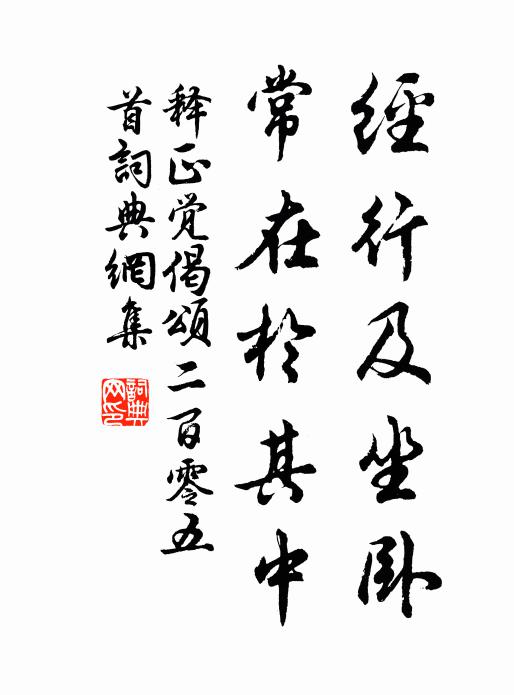 經行及坐卧
常在於其中
释正觉偈頌二百零五
首詞典網集
詞典网印